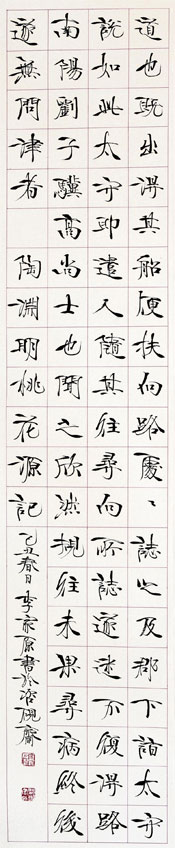 道也既出得其船便扶向路處、誌之及郡下詣太守
說如此太守即遣人隨其往尋向所誌遂迷不復得路
南陽劉子驥高尚士也聞之欣然規往未果尋病終後
遂無問津者 陶淵明桃花源記
乙丑春日李家原書於硯齋